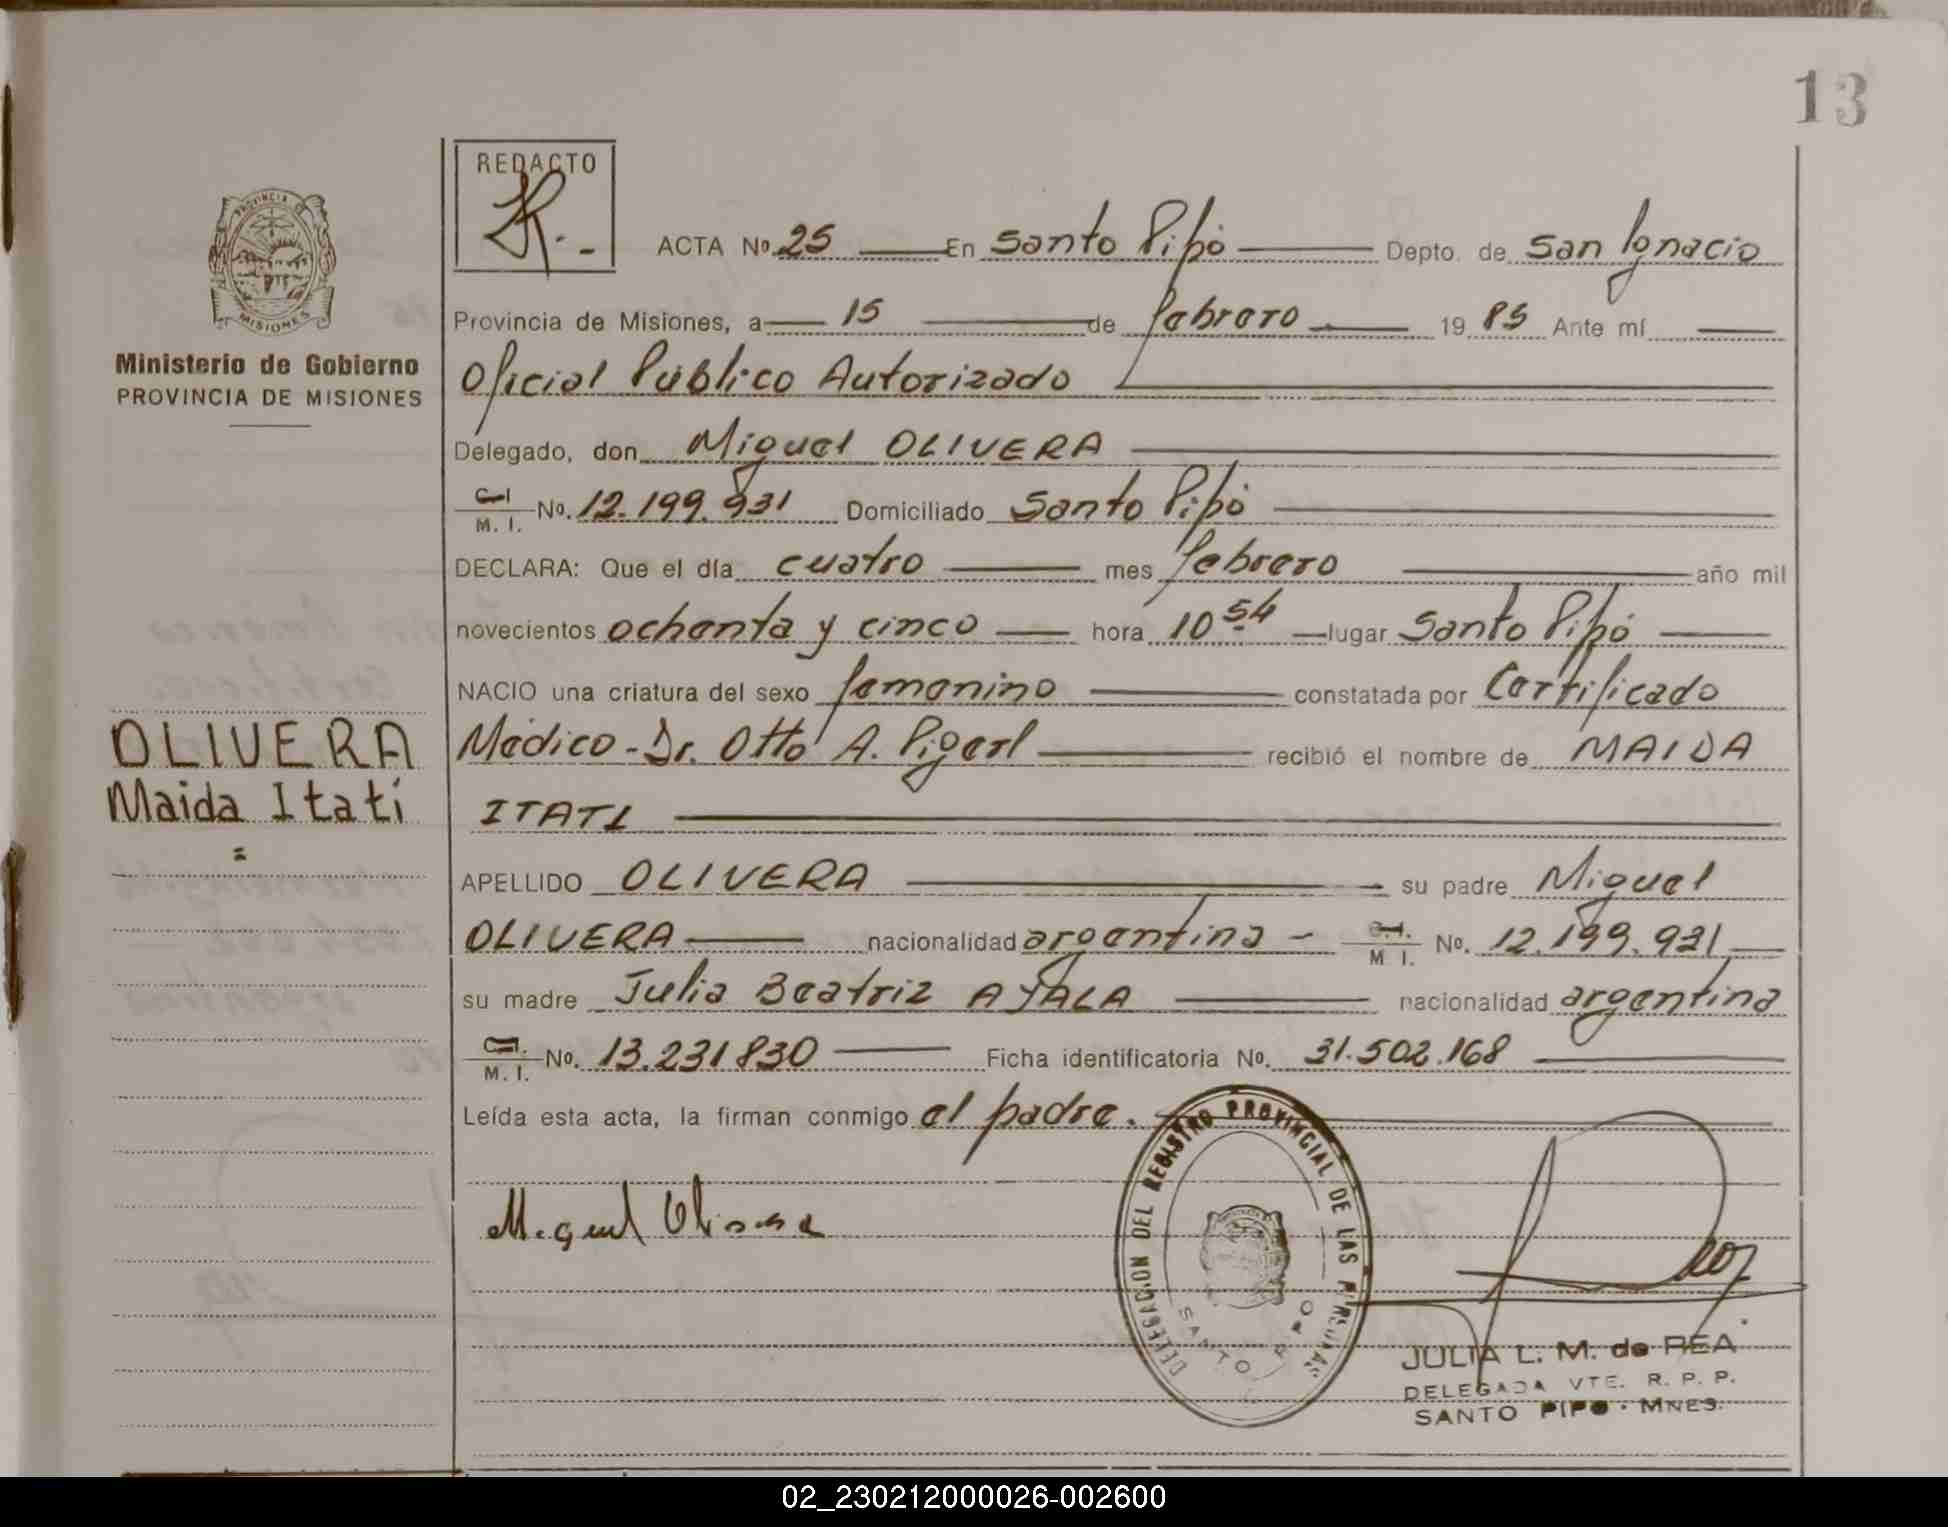 13
REDACTO
PROVINCIA DE
MISIONES
Ministerio de Gobierno
PROVINCIA DE MISIONES
OLIVERA
Maida Itatí
ACTA Nº 25 En Santo Pipó Depto. de San Ignacio
Provincia de Misiones, a 15 de febrero 1985 Ante mí
Oficial Público Autorizado
Delegado, don Miguel OLIVERA
C.I. M. I. Nº. 12.199.931 Domiciliado Santo Pipó
DECLARA: Que el día cuatro mes febrero año mil
novecientos ochenta y cinco hora 10 54 lugar Santo Pipó
NACIO una criatura del sexo femenino constatada por Certificado
Médico - Dr. Otto A. Pigerl recibió el nombre de MAIDA
ITATI
APELLIDO OLIVERA su padre Miguel
OLIVERA nacionalidad argentina - C.I. M I. Nº. 12.199.931
su madre Julia Beatriz AYALA nacionalidad argentina
C.I. M. I. Nº. 13.231830 Ficha identificatoria Nº. 31.502.168
Leída esta acta, la firman conmigo el padre.
Miguel Olivera
DELEGACION DEL REGISTRO PROVINCIAL DE LAS PERSONAS
SANTO PIPO
JULIA L. M. de REA
DELEGADA VTE. R. P. P.
SANTO PIPO - MNES.
02_230212000026-002600